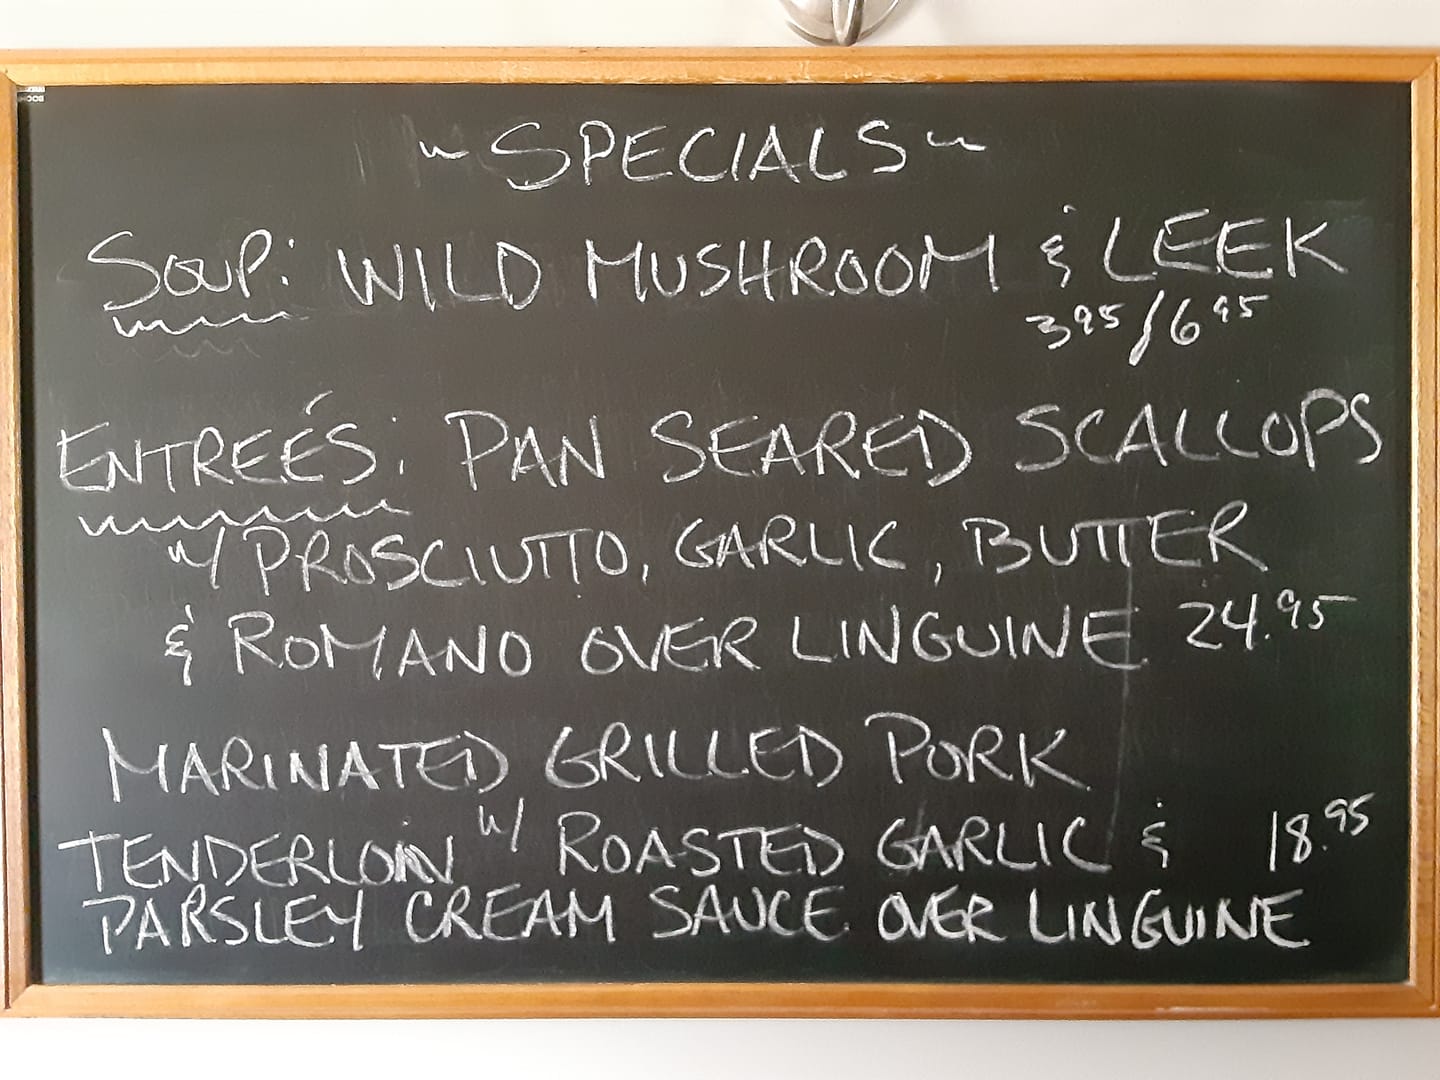 ~ SPECIALS ~
SOUP: WILD MUSHROOM & LEEK
3.95/6.95
ENTREÉS: PAN SEARED SCALLOPS
w/ PROSCIUTTO, GARLIC, BUTTER
& ROMANO OVER LINGUINE 24.95
MARINATED GRILLED PORK
TENDERLOIN w/ ROASTED GARLIC & 18.95
PARSLEY CREAM SAUCE OVER LINGUINE